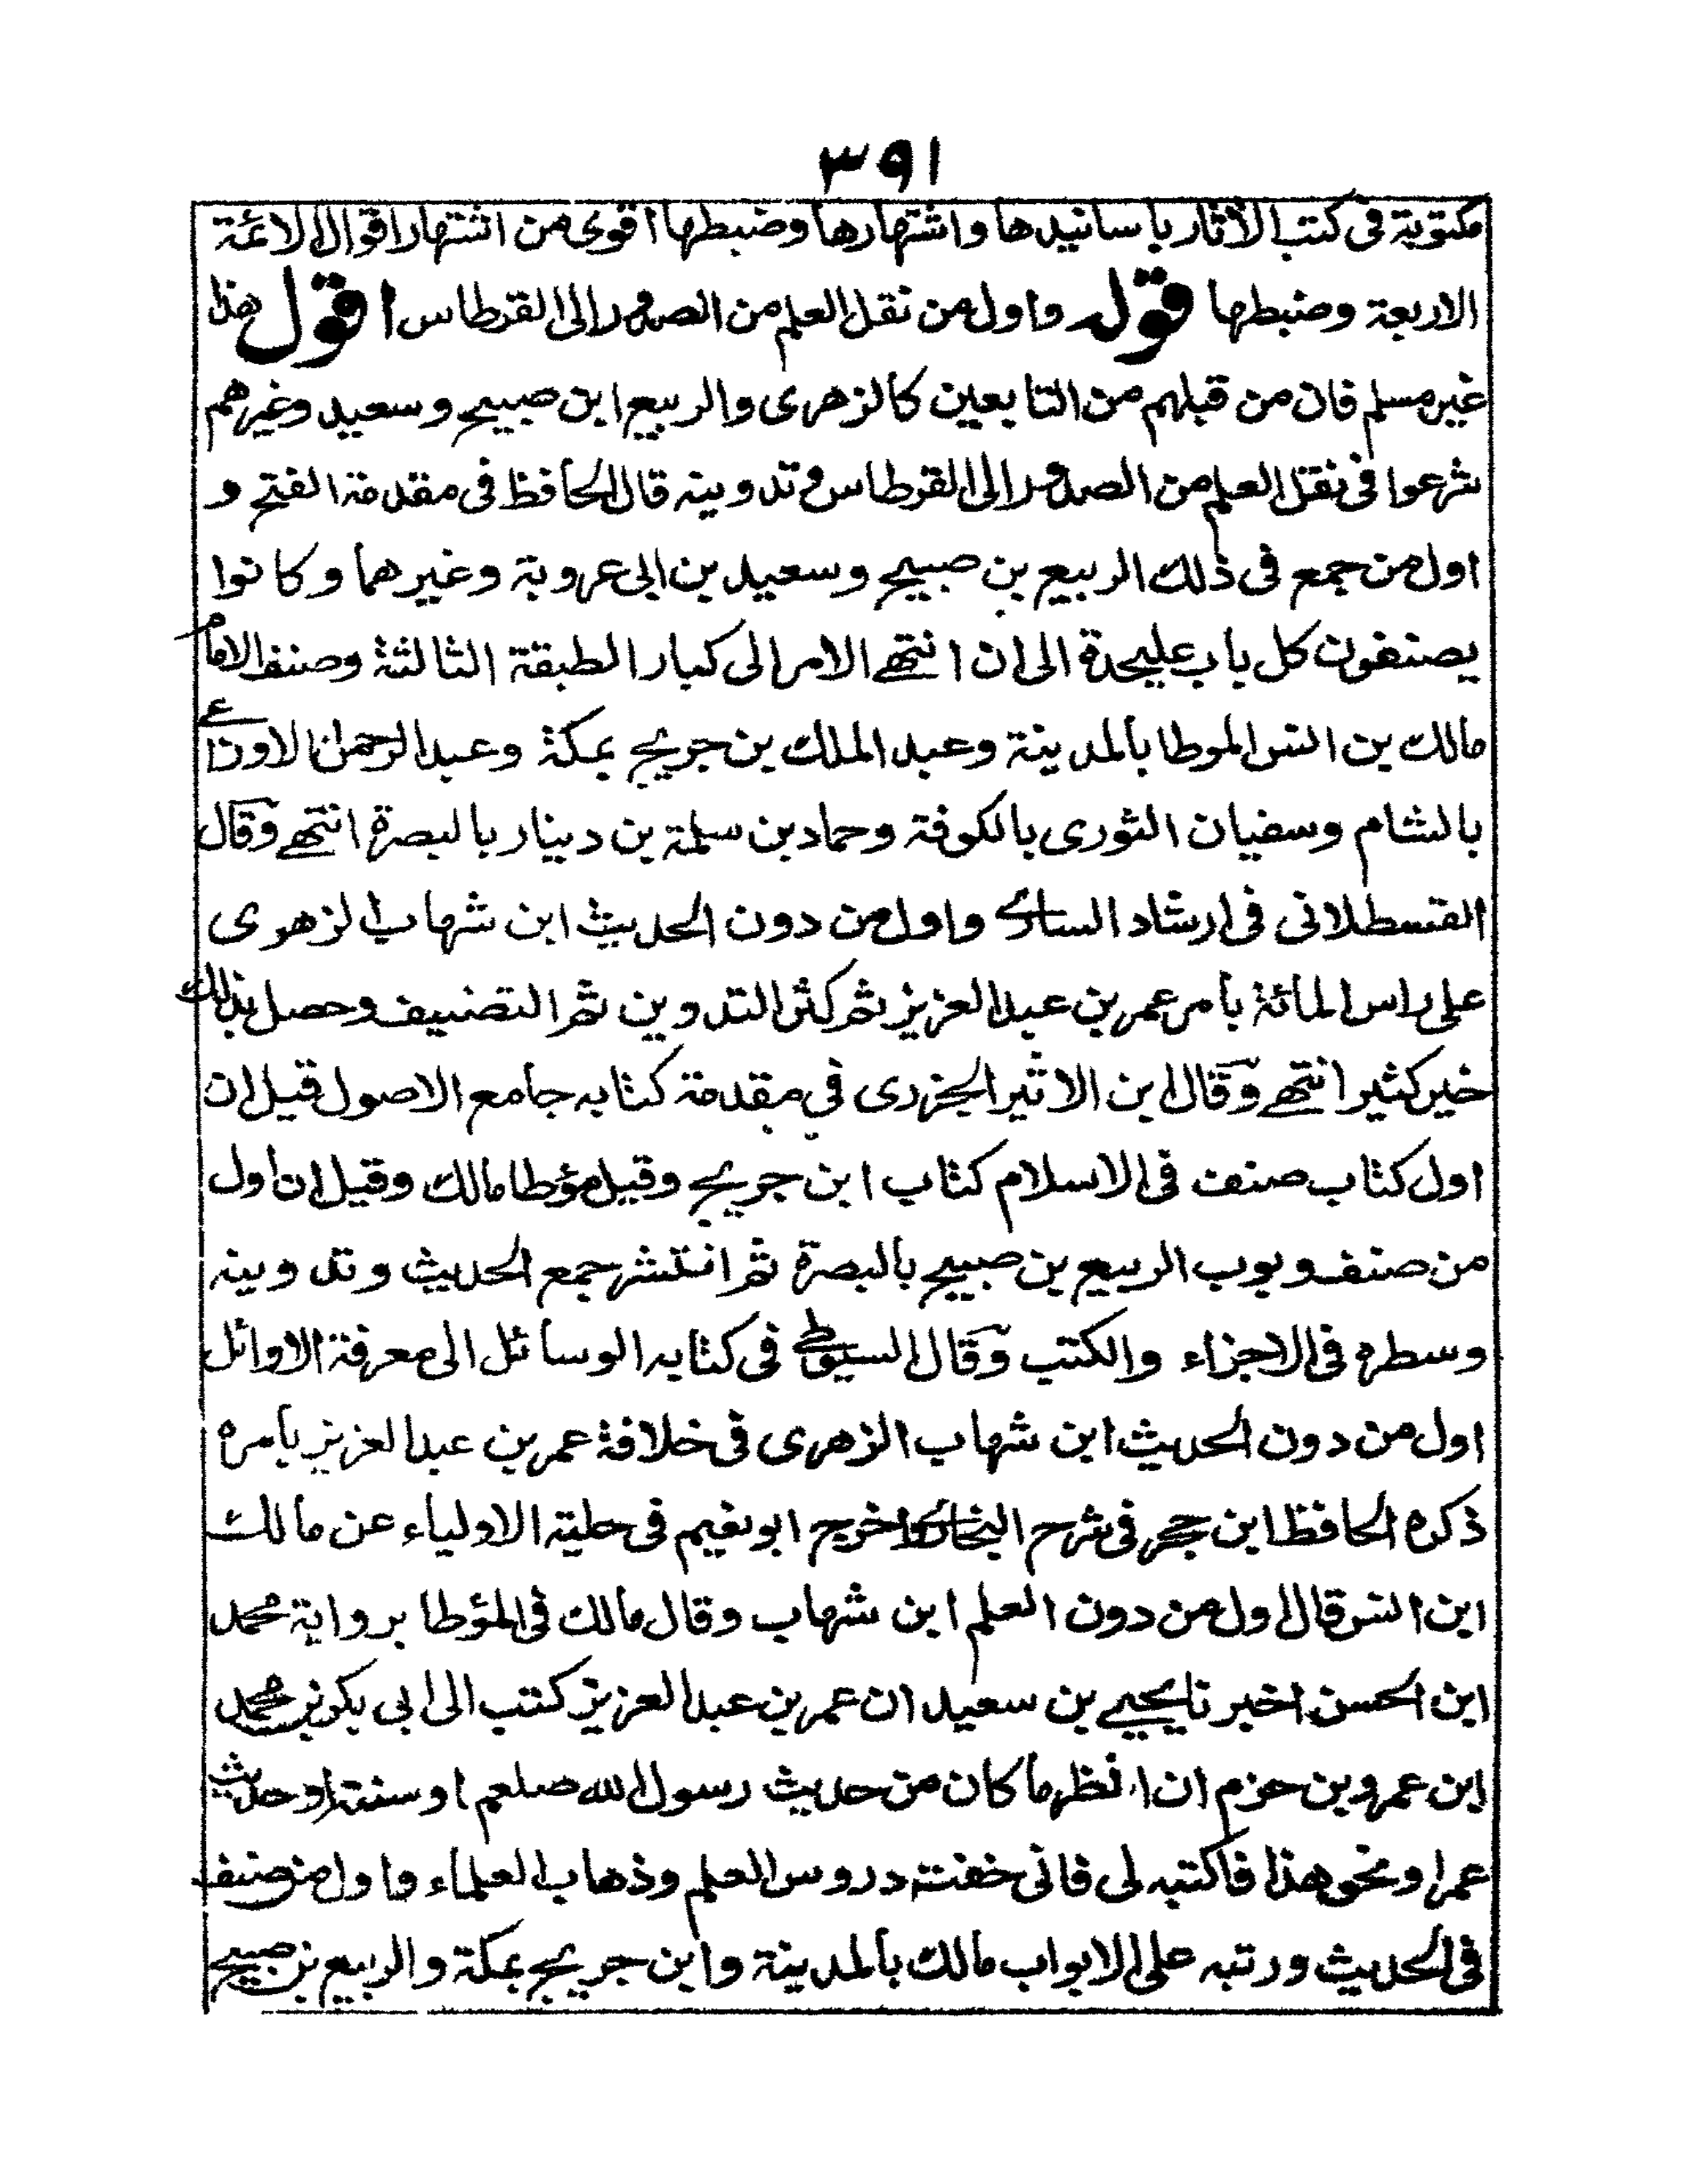 ٣٩١
مكتوبة فى كتب الآثار باسانيدها واشتهارها وضبطها اقوى من اشتهار اقوال الائمة
الاربعة وضبطها قوله واول من نقل العلم من الصدور الى القرطاس اقول هذا
غير مسلم فان من قبلهم من التابعين كالزهرى والربيع ابن صبيح وسعيد وغيرهم
شرعوا فى نقل العلم من الصدور الى القرطاس وتدوينه قال الحافظ فى مقدمة الفتح و
اول من جمع فى ذلك الربيع بن صبيح وسعيد بن ابى عروبة وغيرهما وكانوا
يصنفون كل باب عليحدة الى ان انتهى الامر الى كبار الطبقة الثالثة وصنف الامام
مالك بن انس الموطا بالمدينة وعبد الملك بن جريج بمكة وعبد الرحمن الاوزاعى
بالشام وسفيان الثورى بالكوفة وحماد بن سلمة بن دينار بالبصرة انتهى وقال
القسطلانى فى ارشاد السارى واول من دون الحديث ابن شهاب الزهرى
على راس المائة بامر عمر بن عبد العزيز ثم كثر التدوين ثم التصنيف وحصل بذلك
خير كثير انتهى وقال ابن الاثير الجزرى فى مقدمة كتابه جامع الاصول قيل ان
اول كتاب صنف فى الاسلام كتاب ابن جريج وقيل مؤطا مالك وقيل ان اول
من صنف وبوب الربيع بن صبيح بالبصرة ثم انتشر جمع الحديث وتدوينه
وسطره فى الاجزاء والكتب وقال السيوطى فى كتابه الوسائل الى معرفة الاوائل
اول من دون الحديث ابن شهاب الزهرى فى خلافة عمر بن عبد العزيز بامره
ذكره الحافظ ابن حجر فى شرح البخارى واخرج ابو نعيم فى حلية الاولياء عن مالك
ابن انس قال اول من دون العلم ابن شهاب وقال مالك فى المؤطا برواية محمد
ابن الحسن اخبرنا يحيى بن سعيد ان عمر بن عبد العزيز كتب الى ابى بكر بن محمد
ابن عمرو بن حزم ان انظر ما كان من حديث رسول الله صلعم او سنته او حديث
عمر او نحو هذا فاكتبه لى فانى خفت دروس العلم وذهاب العلماء واول من صنف
فى الحديث ورتبه على الابواب مالك بالمدينة وابن جريج بمكة والربيع بن صبيح